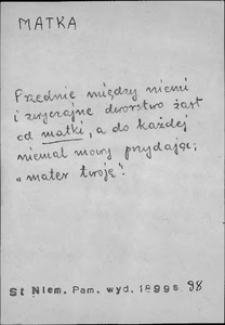 MATKA
Przednie między niemi
i zwyczajne dworstwo żart
od matki, a do każdej
niemal mowy przydając:
„mater twoję”.
St Niem. Pam. wyd. 1899 s. 98